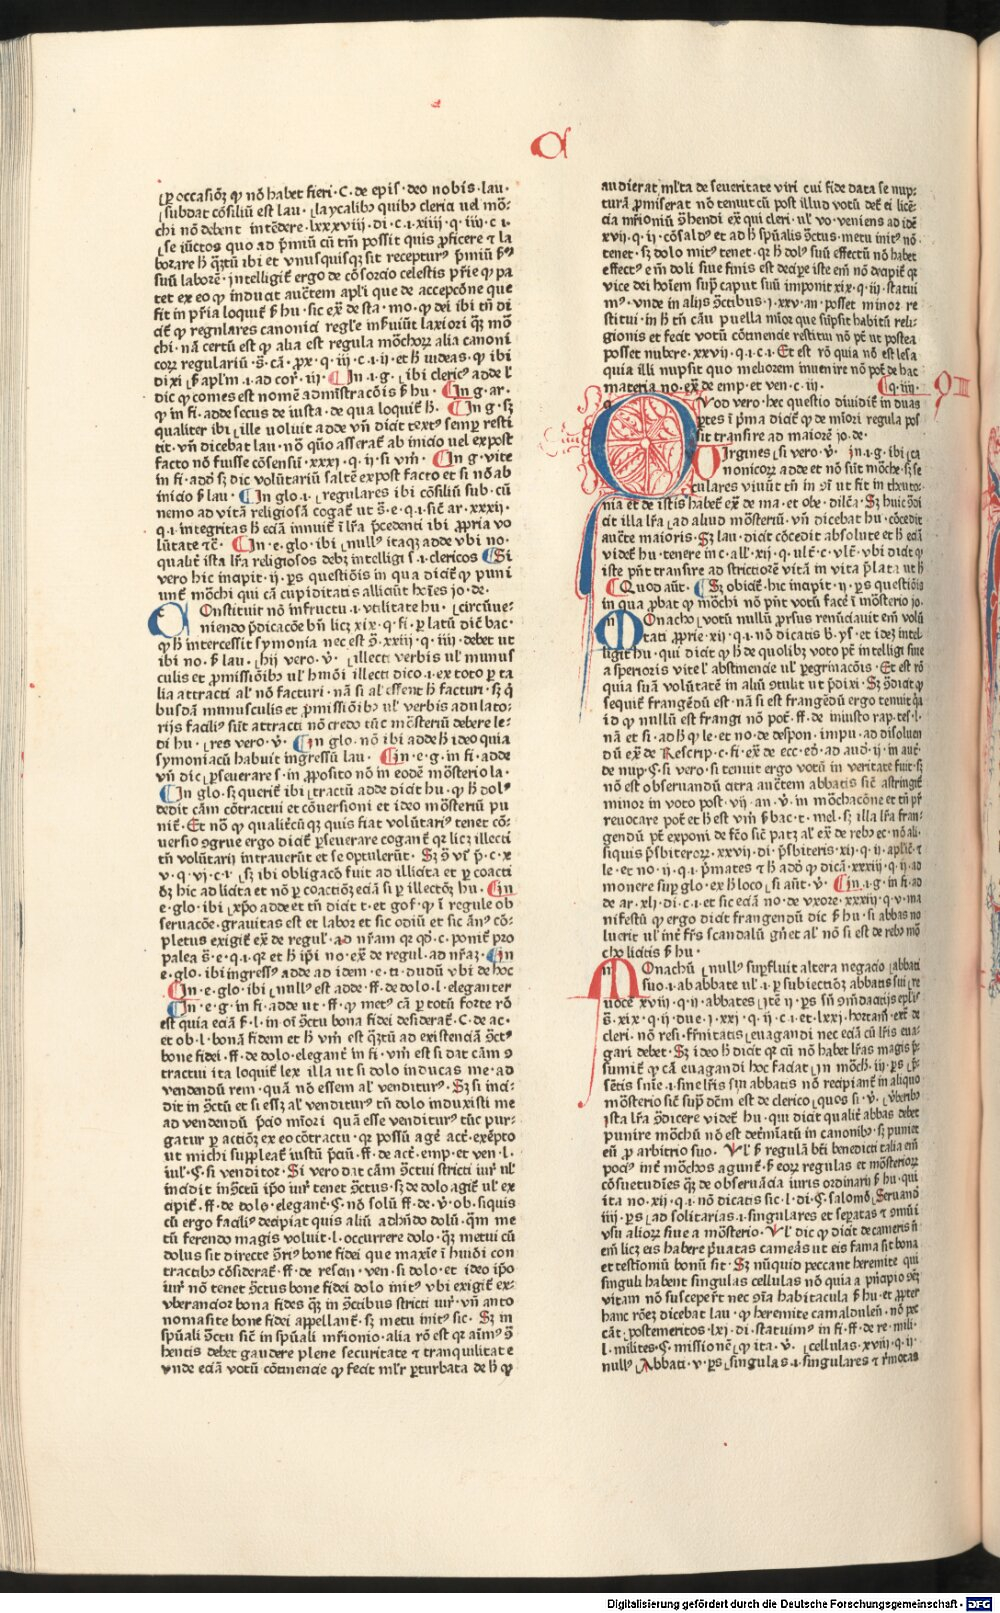 ꝑ occasiōꝫ ꝙ nō habet fieri· C· de epis· deo nobis· lau·
subdat cōsiliū est lau· laycalibꝰ quibꝰ clerici uel mō⸗
chi nō debent intēdere· lxxxviii· di· c· i· xiiii· q· iiii· c i·
se iūctos quo ad p̄miū cū tm̄ possit quis ꝓficere ⁊ la
borare
suū laborē· intelligit̄ ergo de cōsorcio celestis p̄rie ꝙ pa
tet ex eo ꝙ inducit auct̄em apl̓i que de accepcōne que
fit in p̄ria loquit̄ p̄ hu· sic ex̄ de sta· mo· ꝙ dei ibi tn̄ di
cit̄ ꝙ regulares canonici
chi· nā certū est ꝙ alia est regula mōchoꝝ alia canoni
coꝝ regulariū
dixi
dic ꝙ comes est nomē admīstracōis p̄ hu· In g· ar·
ꝙ in fi· adde secus de iusta· de qua loquit̄ h̄· In g· sꝫ
qualiter ibi ille voluit adde vn̄ dicit textꝰ semꝑ resti
tit· vn̄ dicebat lau· nō qn̄o asserat̄ ab inicio uel expost
facto nō fuisse cōsensū· xxxi· q· ii· si vm̄· In g· vite
in fi· adde sꝫ dic volūtariū saltē expost facto et si nō ab
inicio p̄ lau· In glo· i· regulares ibi cōsiliū sub· cū
nemo ad vitā religiosā cogat̄ ut
q· i· integritas
lūtate ⁊c̄· In· e· glo· ibi nullꝰ itaqꝫ adde vbi no·
qualit̄ ista lr̄a religiosos debꝫ intelligi s· i· clericos Si
vero hic incipit· ii· ꝑs questiōis in qua dicit̄ ꝙ puni
unt̄ mōchi qui cā cupiditatis alliciūt hoīes jo· de·
Onstituit nō infructu· i· vtilitate hu· circūue⸗
niendo p̄dicacōe
ꝙ h̄ intercessit symonia nec est
ibi no· p̄ lau· hij vero· v̄· illecti verbis ul̓ munus
culis et ꝓmissiōibꝰ ul̓ hm̄oi illecti dico· i· ex toto ꝑ ta
lia attracti al̓ nō facturi· nā si al̓ essent h̄ facturi· sꝫ q̄
busdā munusculis et ꝓmissiōibꝰ ul̓ verbis adulato⸗
rijs faciliꝰ sūt attracti nō credo tūc mōsteriū debere le⸗
di hu· res vero· v̄· In glo· nō ibi adde h̄ ideo quia
symoniacū habuit ingressū lau· In· e· g· in fi· adde
vn̄ dic ꝑseuerare s· in ꝓposito nō in eodē mōsterio la·
In glo· sꝫ querit̄ ibi tractū adde dicit hu· ꝙ h̄ dolꝰ
dedit cām cōtractui et cōuersioni et ideo mōsteriū pu
nit̄· Et nō ꝙ qualit̄cūqꝫ quis fiat volūtariꝰ tenet cō⸗
uersio ꝯgrue ergo dicit̄ ꝑseuerare cogant̄ qꝛ licꝫ illecti
tn̄ volūtarij intrauerūt et se optulerūt·
v· q· vj· c· i· sꝫ ibi obligacō fuit ad illicita et ꝑ coacti
ōꝫ hic ad licita et nō ꝑ coactiōꝫ eciā si ꝑ illectōꝫ hu· In
e· glo· ibi xp̄o adde et tn̄ dicit t· et gof· ꝙ ī regule ob
seruacōe· grauitas est et labor et sic odiū et sic ānꝰ cō⸗
pletus exigit̄ ex̄ de regul̓· ad nr̄am qꝛ qō· c· ponit̄ pro
palea
e· glo· ibi ingressꝰ adde ad idem· e· ti· dudū vbi de hoc
In· e· glo· ibi nullꝰ est adde· ff· de dolo· l· eleganter
In· e· g· in fi· adde ut· ff· ꝙ metꝰ cā ꝑ totū forte rō
est quia eciā
et ob· l· bonā fidem et h̄ vm̄ est
bone fidei· ff· de dolo· elegant̄ in fi· vm̄ est si dat cām ꝯ
tractui ita loquit̄ lex illa ut si dolo inducas me· ad
vendendū rem· quā nō essem al̓ venditurꝰ· Sꝫ si inci⸗
dit in ꝯtū et si essꝫ al̓ venditurꝰ tn̄ dolo induxisti me
ad vendendū p̄cio mīori quā esse venditurꝰ tūc pur⸗
gatur ꝑ actiōꝫ ex eo cōtractu· qꝛ possū ager̄ act̄· ex ēpto
ut michi suppleat̄ iustū p̄ciū· ff· de act̄· emp· et ven· l·
iul̓· §· si venditor· Si vero dat cām ꝯtui stricti iur̄ ul̓
incidit in ꝯtū ip̄o iur̄ tenet ꝯtus· sꝫ de dolo agit̄ ul̓ ex
cipit̄· ff· de dolo· elegant̄· §· nō solū ff· de· v̄· ob· siquis
cū ergo faciliꝰ decipiat quis aliū adhn̄do dolū· qm̄ me
tū ferendo magis voluit· l· occurrere dolo· qꝫ metui cū
dolus sit directe
tractibꝰ cōsiderat̄· ff· de rescin· ven· si dolo· et ideo ip̄o
iur̄ nō tenet ꝯtus bone fidei dolo initꝰ vbi exigit̄ ex⸗
vberancior bona fides qꝫ in ꝯtibus stricti iur̄· vn̄ anto
nomasite bone fidei appellant̄· sꝫ metu initꝰ sic· Sꝫ in
spūali ꝯtu sic̄ in spūali mr̄ionio· alia rō est qꝛ aīmꝰ
hentis debet gaudere plene securitate ⁊ tranquilitate
vnde eciā votū cōtinencie ꝙ fecit ml̓r ꝑturbata de h̄ ꝙ
audierat ml̓ta de seueritate viri cui fide data se nup⸗
turā ꝓmiserat nō tenuit cū post illud votū det̄ ei licē⸗
cia mr̄ioniū ꝯhendi ex̄ qui cleri· ul̓ vo· veniens ad idē
xvii· q· ii· cōsaldꝰ et ad h̄ spūalis ꝯctus· metu initꝰ nō·
tenet· sꝫ dolo mitꝰ tenet· qꝛ h̄ dolꝰ suū effectū nō habet
effectꝰ em̄ doli siue finis est decipe iste em̄ nō decipit̄ qꝛ
vice dei hoīem suꝑ caput suū imponit xix· q· iii· statui
mꝰ· vnde in alijs ꝯctibus· i· xxv· an· posset minor re
stitui· in h̄ tn̄ cāu puella mīor que suscepit habitū reli⸗
gionis et fecit votū cōtinencie restitui nō pōt ut postea
posset nubere· xxvii· q· i· c· i· Et est rō quia nō est lesa
quia illi nupsit quo meliorem inuenire nō pōt̄ de hac
materia no· ex̄ de emp· et ven· c· iii· q· iiii·
Vod vero· hec questio diuidit̄ in duas
ꝑtes i p̄ma dicit̄ ꝙ de mīori regula pos
sit transire ad maiorē jo· de·
Irgines si vero· v̄· in· i· g· ibi ca
nonicoꝝ adde et nō sūt mōche· sꝫ se
culares viuūt tn̄ in ꝯi ut fit in theuto⸗
nia et de istis habet̄ ex̄ de ma· et obe· dilc̄a· Sꝫ huic ꝯdi
cit illa lr̄a ad aliud mōsteriū· vn̄ dicebat hu· cōcedit
auct̄e maioris· Sꝫ lau· dicit cōcedit absolute et h̄ eciā
videt̄ hu· tenere in c· all̓· xij· q· ult̄· c· vlt̄· vbi dicit ꝙ
iste pn̄t transire ad strictiorē vitā in vita p̄lata ut h̄
Quod aūt· Sꝫ obicit̄· hic incipit· ii· ꝑs questiōis
in qua ꝓbat ꝙ mōchi nō pn̄t votū facē ī mōsterio jo·
Onacho votū nullū ꝓrsus renūciauit em̄ volū
tati ꝓprie· xij· q· i· nō dicatis
ligit hu· qui dicit ꝙ h̄ de quolibꝫ voto pōt̄ intelligi siue
asperioris vite l̓ abstinencie ul̓ ꝑegrinacōis· Et est rō
quia suā volūtatē in aliū ꝯtulit ut p̄dixi· Sꝫ ꝯdicit̄ ꝙ
sequit̄ frangēdū est· nā si est frangēdū ergo tenuit q̄a
id ꝙ nullū est frangi nō pōt̄· ff· de iniusto rap· tes· l·
nā et si· ad h̄ ꝙ le· et no· de despon· impu· ad disoluen
dū ex̄ de Rescrip· c· fi· ex̄ de ecc· ed̄· ad aud· ij· in aut̄·
de nup· §· si vero· si tenuit ergo votū in veritate fuit· sꝫ
nō est obseruandū citra auct̄em abbatis sic̄ astringit̄
minor in voto post· vij· an· v̄· in mōchacōne et tn̄ pr̄
reuocare pōt̄ et h̄ est vm̄ p̄ bac· t· mel· sꝫ illa lr̄a fran⸗
gendū pōt̄ exponi de fc̄o sic̄ patꝫ al̓ ex̄ de rebꝰ ec· nō ali·
siquis p̄sbiteroꝝ· xxvii· di· p̄sbiteris· xij· q· ii· aplic̄· ⁊
le· et no· ii· q· i· p̄mates ⁊ h̄ adꝺ̓ ꝙ dicā· xxxiij· q· ii· ad
monere suꝑ glo· ex h̄ loco si aūt· v̄· In· i· g· in fi· ad
de ar· xlj· di· c· i· et sic eciā no· de vxore· xxxiij· q· v· ma
nifestū ꝙ ergo dicit frangendū dic p̄ hu· si abbas no
luerit ul̓ int̄ fr̄s scandalū gn̄et al̓ nō si est de rebꝰ mō
cho licitis p̄ hu·
Onachū nullꝰ suꝑfluit altera negacio abbati
suo· i· ab abbate ul̓· i· ꝑ subiectiōꝫ abbatis sui re
uoce· xviii· q· ii· abbates
cleri· nō resi· fr̄nitatis euagandi nec eciā cū lr̄is eua⸗
gari debet· Sꝫ ideo h̄ dicit qꝛ cū nō habet lr̄as magis p̄⸗
sumit̄ ꝙ cā euagandi hoc faciat in mōch· iii· ꝑs p̄⸗
sētis sn̄ie· i· sine lr̄is sui abbatis nō recipiant̄ in aliquo
mōsterio sic̄ suꝑ dc̄m est de clerico quos si· v̄· v̄beribꝰ
ista lr̄a ꝯdicere videt̄ hu· qui dicit qualit̄ abbas debet
punire mōchū nō est det̄mīatū in canonibꝰ· sꝫ puniet
eū ꝓ arbitrio suo· Ul̓ p̄ regulā bt̄i benedicti talia em̄
pociꝰ int̄ mōchos agunt̄· p̄ eoꝝ regulas et mōsterioꝝ
cōsuetudīes qꝫ de obseruācia iuris ordinarij p̄ hu· qui
ita no· xij· q· i· nō dicatis sic· l· di· §· salomō Seruand
iiij· ꝑs ad solitarias· i· singulares et seꝑatas ⁊ ꝯmūi
vsu alioꝝ siue a mōsterio· Ul̓ dic ꝙ dicit de cameris
em̄ licꝫ eis habere p̄uatas cameras ut eis fama sit bona
et testioniū bonū sit· Sꝫ nūquid peccant heremite qui
singuli habent singulas cellulas nō quia a p̄ncipio
vitam nō susceper̄t nec ꝯīa habitacula p̄ hu· et ꝓpter
hanc rōeꝫ dicebat lau· ꝙ heremite camaldulen̄· nō pec
cāt· postemeritos· lxj· di· statuimꝰ in fi· ff· de re· mili·
l· milites· §· missionē ꝙ ita· v̄· cellulas· xviii· q· ii·
nullꝰ Abbati· v· ꝑs singulas· i· singulares ⁊ r̄motas
Digitalisierung gefördert durch die Deutsche Forschungsgemeinschaft - DFG